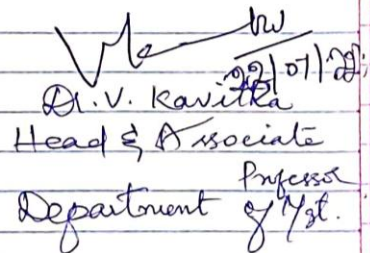 22/07/22
Dr. V. Kavitha
Head & Associate
Professor
Department of